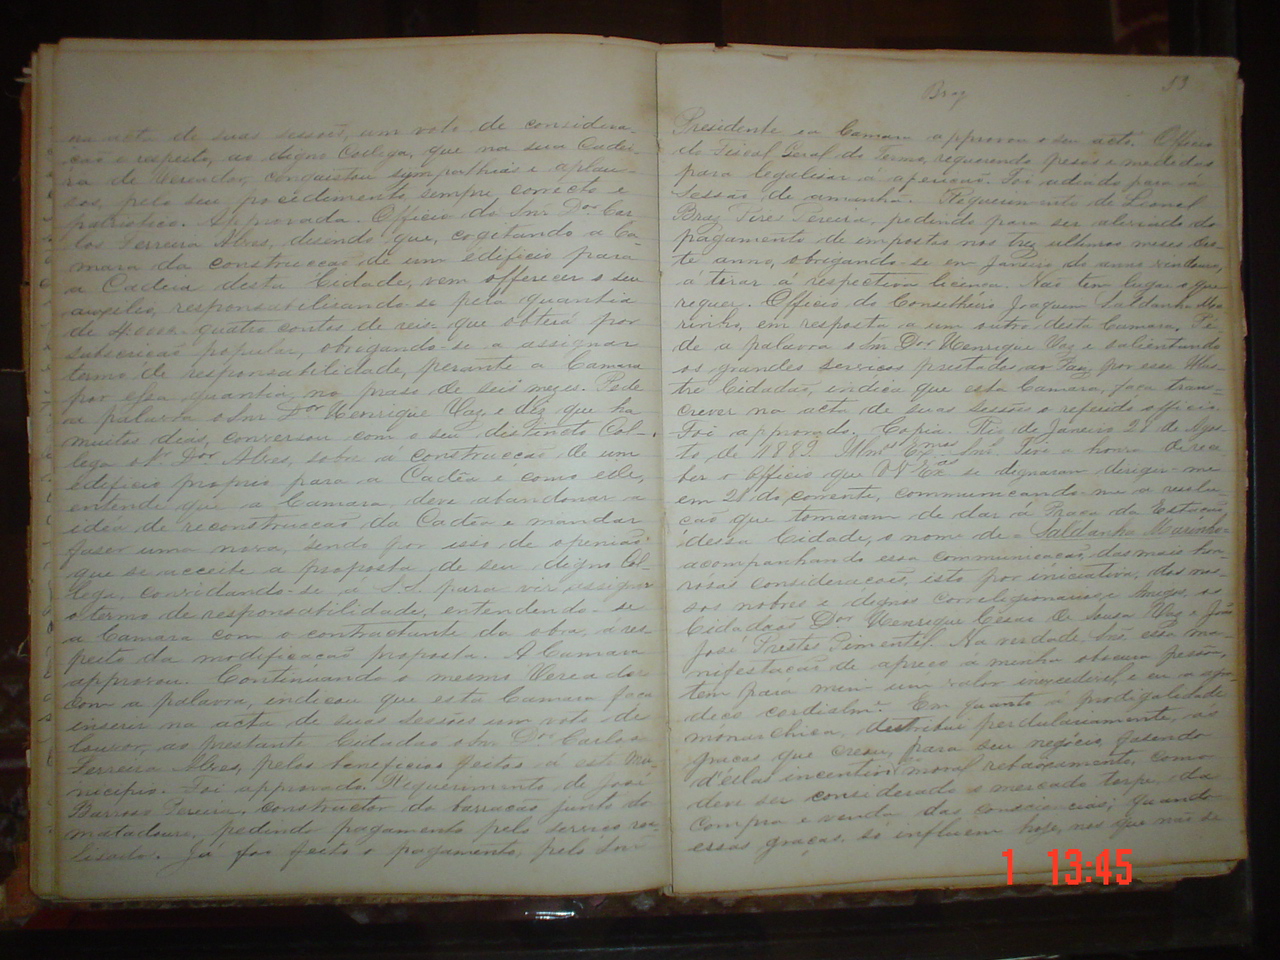 na acta de suas sessões, um voto de considera-
ção e respeito, ao digno Collega, que na sua Cadei-
ra de Vereador, conquistou sympathias e aplau-
sos, pelo seu procedimento sempre correcto e
patriotico. Approvada. Officio do Snr. Dor Car-
los Ferreira Alves, disendo que, cogitando a Ca-
mara da construcção de um edificio para
a Cadeia desta Cidade, vem offerecer o seu
auxilio, responsabilisando-se pela quantia
de 4.000$ quatro contos de reis- que obterá por
subscripção popular, obrigando-se a assignar
termo de responsabilidade, perante a Camara
por essa quantia, no praso de seis mezes. Pede
a palavra o Snr. Dor Henrique Vaz, e diz que ha
muitos dias, conversou com o seu distincto Col-
lega o Sr. Dor Alves, sobre a construcção de um
edificio proprio para a Cadêa e como elle,
entende que a Camara, deve abandonar a
idéa de reconstrucção da Cadêa e mandar
faser uma nova, sendo por isso de openião
que se acceite a proposta de seu digno Col-
lega, convidando-se á S. S. para vir assignar
o termo de responsabilidade, entendendo-se
a Camara com o contractante da obra, á res-
peito da modificação proposta. A Camara
approvou. Continuando o mesmo Vereador
com a palavra, indicou que esta Camara faça
inserir na acta de suas sessões um voto de
louvor, ao prestante Cidadão o Snr. Dor Carlos
Ferreira Alves, pelos beneficios feitos á este Mu-
nicipio. Foi approvado. Requerimento de José
Barroso Pereira, constructor do barracão junto do
matadouro, pedindo pagamento pelo serviço rea-
lisado. Já foi feito o pagamento, pelo Snr.
Braz 53
Presidente e a Camara approvou o seu acto. Officio
do Fiscal Geral do Termo, requerendo pesos e medidas
para legalisar a aferição. Foi adiado para a
Sessão de amanhã. Requerimento de Leonel
Braz Pires Pereira, pedindo para ser aleviado do
pagamento de impostos nos trez ultimos meses des-
te anno, obrigando-se em Janeiro do anno vindouro,
á tirar á respectiva licença. Não tem lugar o que
requer. Officio do Conselheiro Joaquim Saldanha Ma-
rinho, em resposta a um outro desta Camara. Pe-
de a palavra o Snr. Dor Henrique Vaz e salientando
os grandes serviços prestados ao Paiz, por esse Illus-
tre Cidadão, indica que esta Camara, faça trans-
crever na acta de suas sessões o referido officio.
Foi approvado. Copia. Rio de Janeiro 28 de Agos-
to de 1889. Illmos Exmos Snrs. Tive a honra de rece
ber o Officio que VV. Exas se dignaram deregir-me
em 21 do corrente, communicando-me a resolu-
ção que tomaram de dar á Praça da Estação,
dessa Cidade, o nome de - Saldanha Marinho -
acompanhando essa communicação das mais hon-
rosas considerações, isto por iniciativa, dos nos-
sos nobres e dignos correligionarios e amigos, os
Cidadãos Dor Henrique Cesar de Sousa Vaz e João
José Prestes Pimentel. Na verdade, Snrs. essa ma-
nifestação de apreço a minha obscura pessôa,
tem para mim um valor inexcedivel, e eu a agra-
deço cordialme. Em quanto a prodigalidade
monarchica, distribui perdulariamente, as
graças que creou, para seu negócio, fasendo
d'ellas incentivo moral rebaixamento, como
deve ser considerado o mercado torpe, da
compra e venda das consciencias; quando
essas graças, só influem hoje, nos que não se
1 13:45